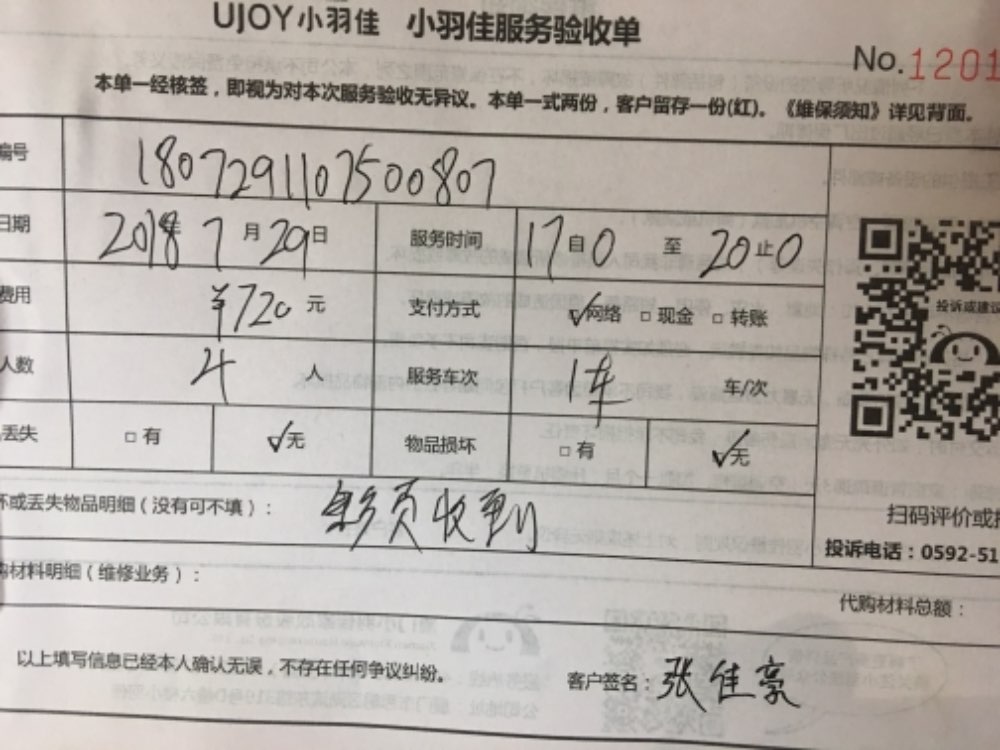 UJOY小羽佳 小羽佳服务验收单
No.1201
本单一经核签，即视为对本次服务验收无异议。本单一式两份，客户留存一份(红)。《维保须知》详见背面。
编号 1807291107500807
日期 2018年7月29日 服务时间 17自0 至 20止0
费用 ¥720元 支付方式 ☑网络 □现金 □转账
人数 4人 服务车次 1车 车/次
丢失 □有 ☑无 物品损坏 □有 ☑无
投诉或建议
坏或丢失物品明细（没有可不填）： 收到
扫码评价或
投诉电话：0592-51
购材料明细（维修业务）：
代购材料总额：
以上填写信息已经本人确认无误，不存在任何争议纠纷。
客户签名：张佳豪